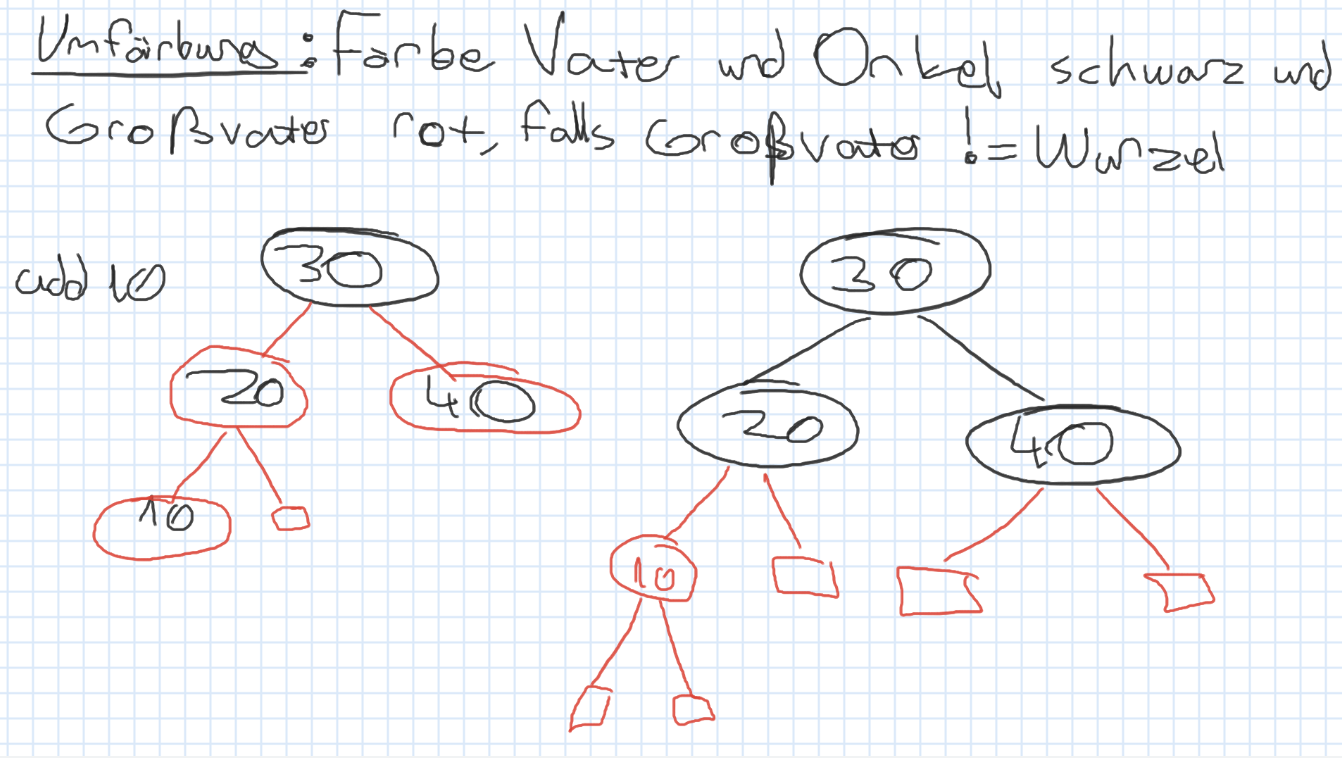 Umfärbung: Färbe Vater und Onkel schwarz und
Großvater rot, falls Großvater != Wurzel
add 10
30
30
20
40
20
40
10
10